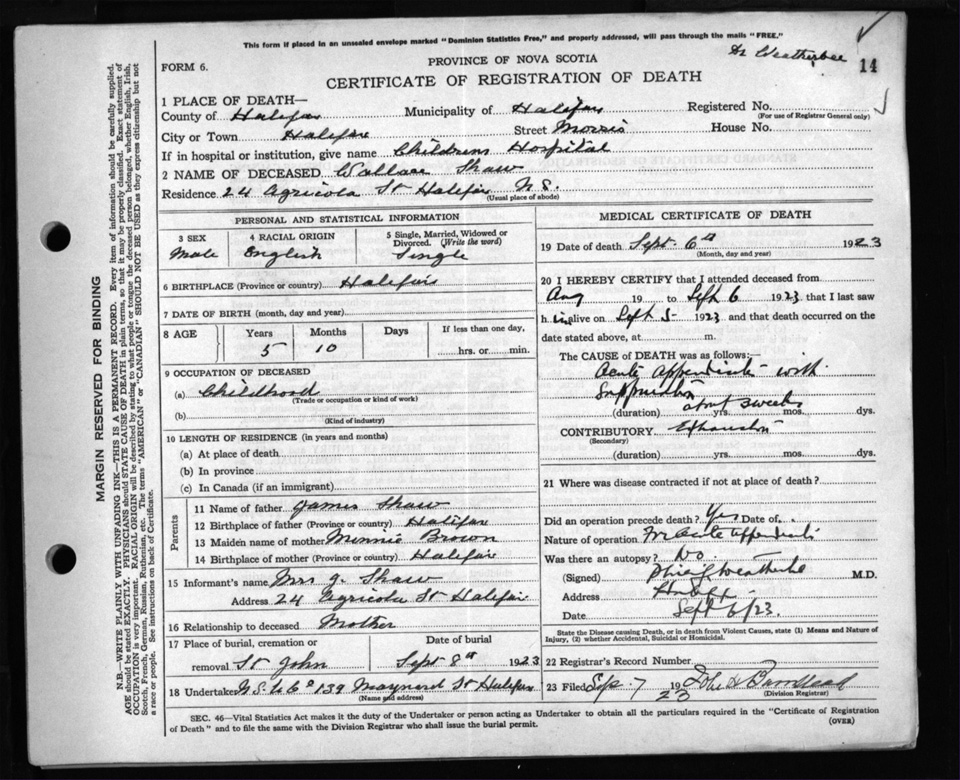 This form if placed in an unsealed envelope marked "Dominion Statistics Free," and properly addressed, will pass through the mails "FREE."
PROVINCE OF NOVA SCOTIA
Dr Weatherbee
14
FORM 6.
CERTIFICATE OF REGISTRATION OF DEATH
1 PLACE OF DEATH—
County of Halifax Municipality of Halifax Registered No.
(For use of Registrar General only)
City or Town Halifax Street Morris House No.
If in hospital or institution, give name Childrens Hospital
2 NAME OF DECEASED Wallace Shaw
Residence 24 Agricola St Halifax N.S.
(Usual place of abode)
PERSONAL AND STATISTICAL INFORMATION
3 SEX
Male
4 RACIAL ORIGIN
English
5 Single, Married, Widowed or Divorced. (Write the word)
Single
6 BIRTHPLACE (Province or country) Halifax
7 DATE OF BIRTH (month, day and year)
8 AGE Years Months Days If less than one day,
5 10 hrs. or min.
9 OCCUPATION OF DECEASED
(a) Childhood
(Trade or occupation or kind of work)
(b)
(Kind of industry)
10 LENGTH OF RESIDENCE (in years and months)
(a) At place of death
(b) In province
(c) In Canada (if an immigrant)
Parents
11 Name of father James Shaw
12 Birthplace of father (Province or country) Halifax
13 Maiden name of mother Minnie Brown
14 Birthplace of mother (Province or country) Halifax
15 Informant's name Mrs J. Shaw
Address 24 Agricola St Halifax
16 Relationship to deceased Mother
17 Place of burial, cremation or Date of burial
removal St John Sept 8th 1923
18 Undertaker N.S. U Co 139 Maynard St Halifax
(Name and address)
MEDICAL CERTIFICATE OF DEATH
19 Date of death Sept. 6th 1923
(Month, day and year)
20 I HEREBY CERTIFY that I attended deceased from
Aug 19 to Sept 6 1923, that I last saw
h im alive on Sept 5 1923 and that death occurred on the
date stated above, at m.
The CAUSE of DEATH was as follows:—
Acute Appendicitis with
Suppuration
about 3 weeks
(duration) yrs. mos. dys.
CONTRIBUTORY Exhaustion
(Secondary)
(duration) yrs. mos. dys.
21 Where was disease contracted if not at place of death?
Did an operation precede death? Yes Date of
Nature of operation For Acute appendicitis
Was there an autopsy? No
(Signed) Weatherbe M.D.
Address Halifax
Date Sept 6/23.
State the Disease causing Death, or in death from Violent Causes, state (1) Means and Nature of
Injury, (2) whether Accidental, Suicidal or Homicidal.
22 Registrar's Record Number
23 Filed Sep. 7 1923 John H Barnstead
(Division Registrar)
SEC. 46—Vital Statistics Act makes it the duty of the Undertaker or person acting as Undertaker to obtain all the particulars required in the "Certificate of Registration
of Death" and to file the same with the Division Registrar who shall issue the burial permit. (OVER)
MARGIN RESERVED FOR BINDING
N.B.—WRITE PLAINLY WITH UNFADING INK—THIS IS A PERMANENT RECORD. Every item of information should be carefully supplied.
AGE should be stated EXACTLY. PHYSICIANS should STATE CAUSE OF DEATH in plain terms, so that it may be properly classified. Exact statement of
OCCUPATION is very important. RACIAL ORIGIN will be described by stating to what people or tongue the deceased person belonged, whether English, Irish,
Scotch, French, German, Russian, Ruthenian, etc. The terms "AMERICAN" or "CANADIAN" SHOULD NOT BE USED as they express citizenship but not
a race or people. See instructions on back of Certificate.